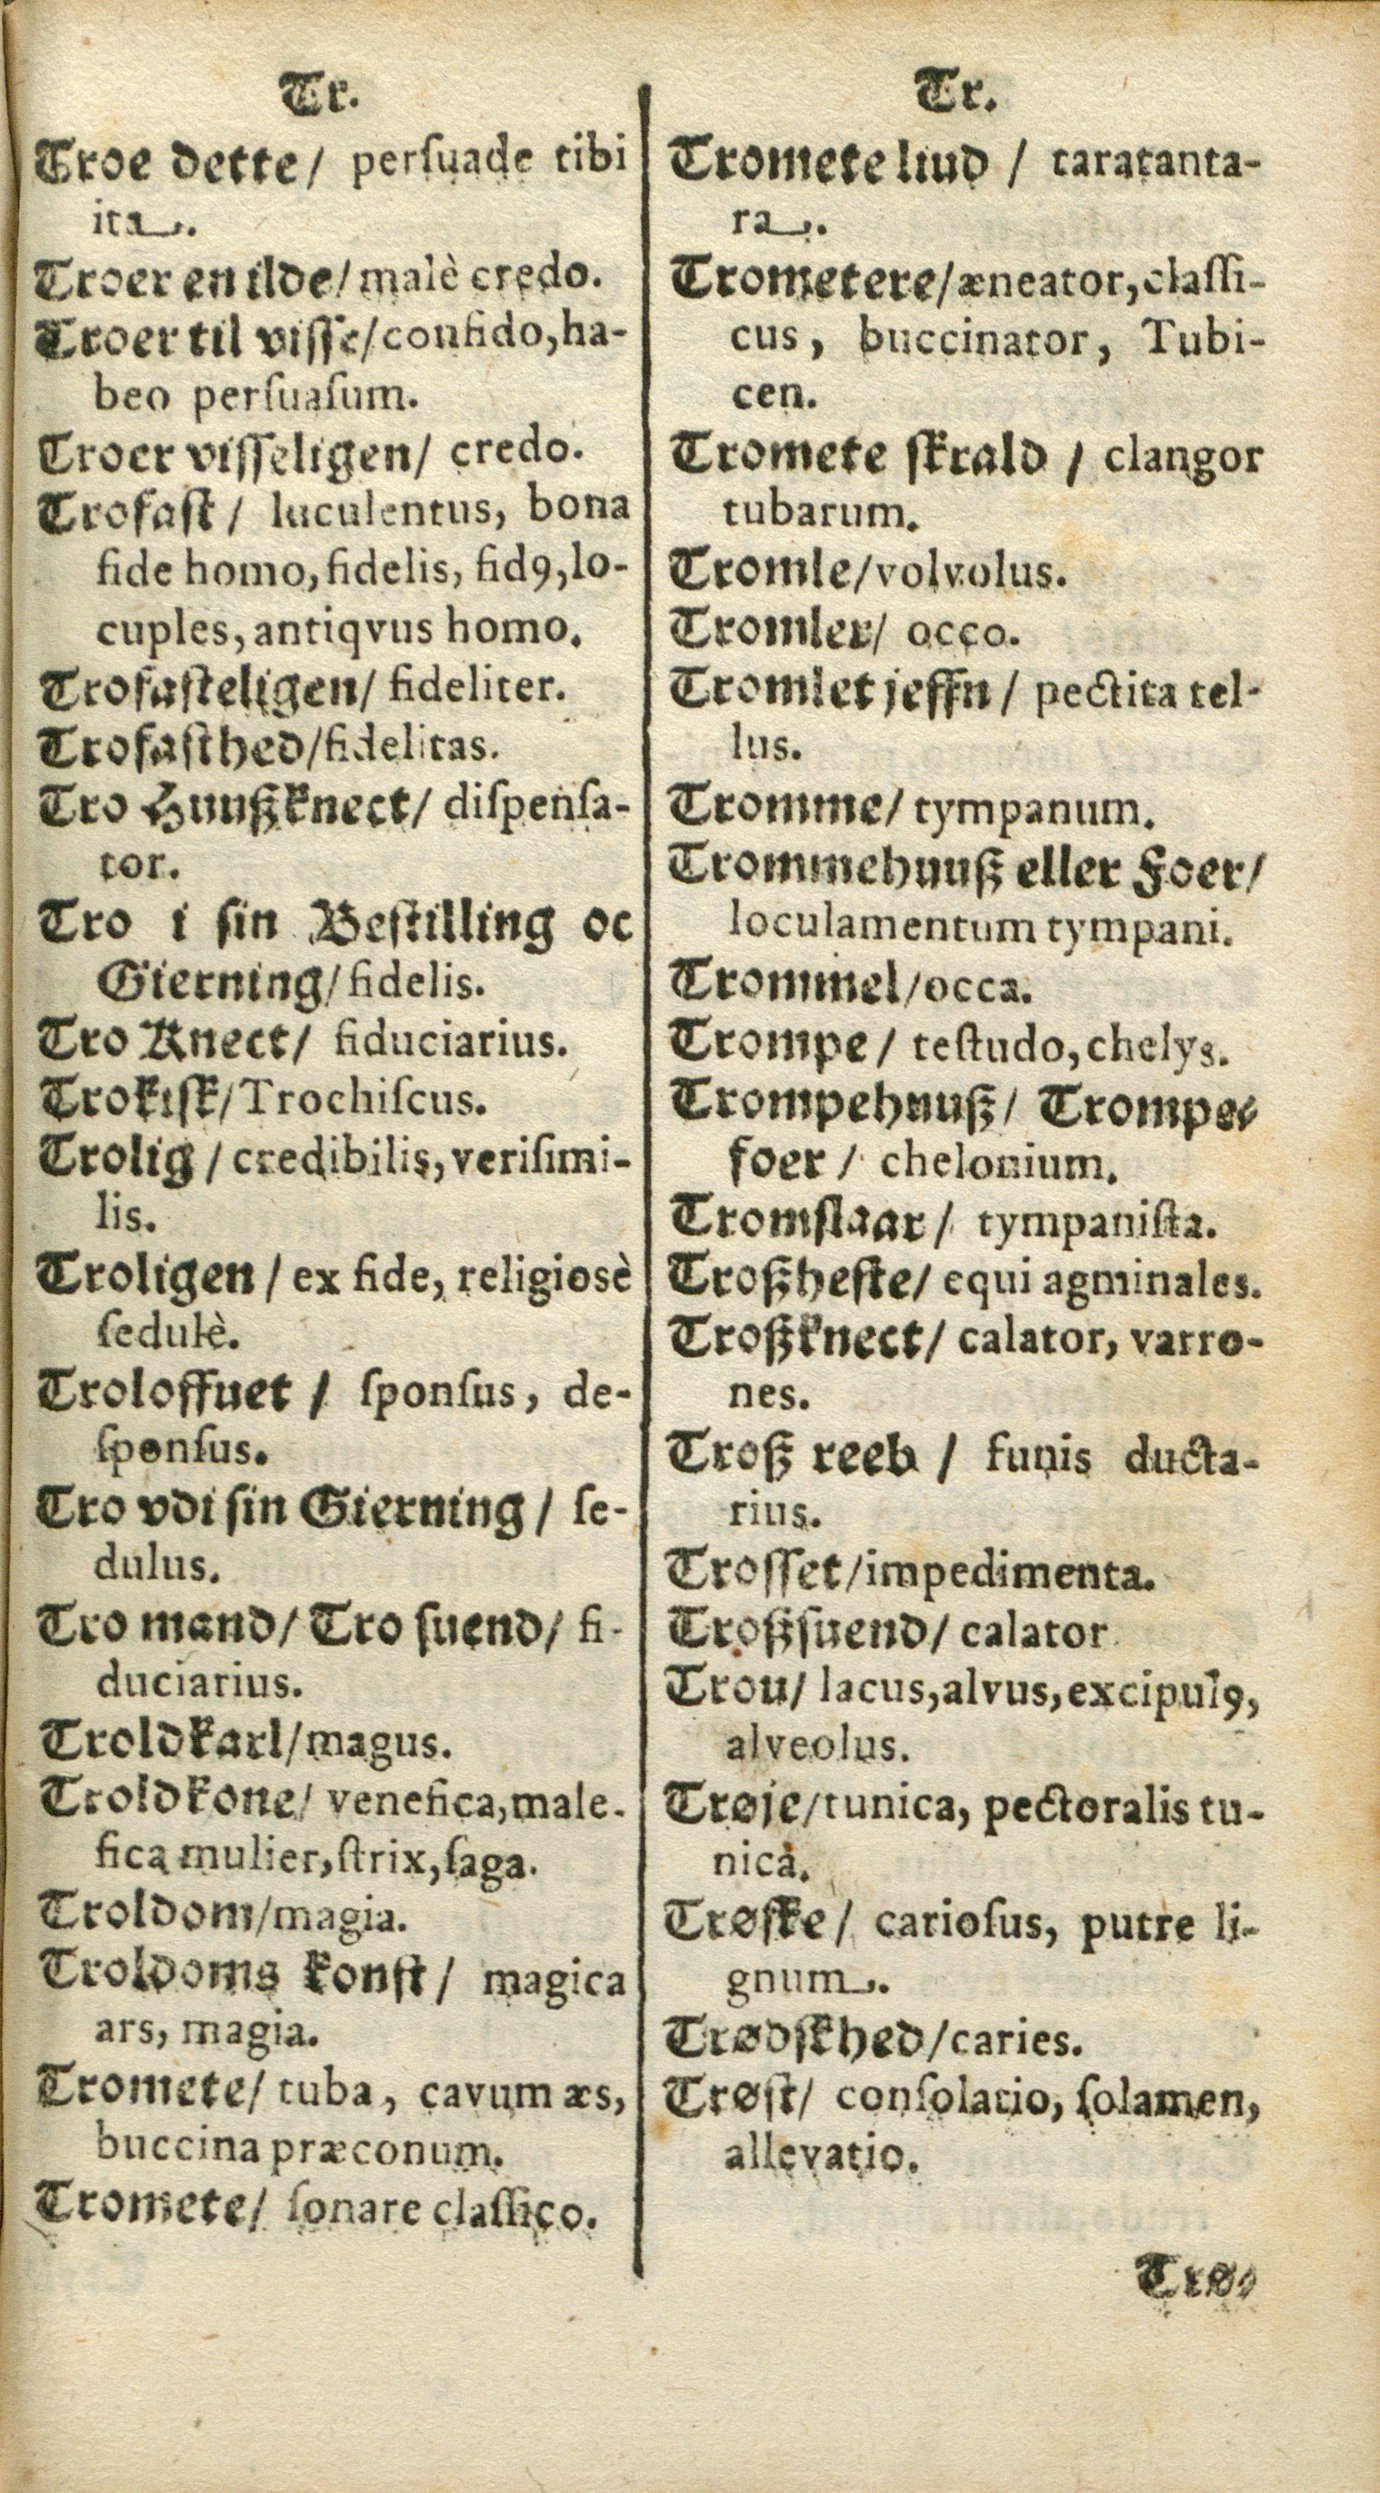 Tr.
Troe dette/ perſuade tibi
ita.
Troer en ilde/ malè credo.
Troer til viſſe/ confido, ha-
beo perſuaſum.
Troer viſſeligen/ credo.
Trofaſt/ luculentus, bona
fide homo, fidelis, fidꝰ, lo-
cuples, antiqvus homo.
Trofaſteligen/ fideliter.
Trofaſthed/ fidelitas.
Tro Huußknect/ diſpenſa-
tor.
Tro i ſin Beſtilling oc
Gierning/ fidelis.
Tro Knect/ fiduciarius.
Trokiſk/ Trochiſcus.
Trolig/ credibilis, veriſimi-
lis.
Troligen/ ex fide, religiosè
ſedulè.
Troloffuet/ ſponſus, de-
ſponſus.
Tro vdi ſin Gierning/ ſe-
dulus.
Tro mand/ Tro ſuend/ fi-
duciarius.
Troldkarl/ magus.
Troldkone/ venefica, male-
fica mulier, ſtrix, ſaga.
Troldom/ magia.
Troldoms konſt/ magica
ars, magia.
Tromete/ tuba, cavum æs,
buccina præconum.
Tromete/ ſonare claſſico.
Tr.
Tromete liud/ taratanta-
ra.
Trometere/ æneator, claſſi-
cus, buccinator, Tubi-
cen.
Tromete ſkrald/ clangor
tubarum.
Tromle/ volvolus.
Tromler/ occo.
Tromlet jeffn/ pectita tel-
lus.
Tromme/ tympanum.
Trommehuuß eller Foer/
loculamentum tympani.
Trommel/ occa.
Trompe/ teſtudo, chelys.
Trompehuuß/ Trompe-
foer/ chelonium.
Tromſlaar/ tympaniſta.
Troßheſte/ equi agminales.
Troßknect/ calator, varro-
nes.
Troß reeb/ funis ducta-
rius.
Troſſet/ impedimenta.
Troßſuend/ calator
Trou/ lacus, alvus, excipulꝰ,
alveolus.
Trøje/ tunica, pectoralis tu-
nica.
Trøſke/ carioſus, putre li-
gnum.
Trødſkhed/ caries.
Trøſt/ conſolatio, ſolamen,
allevatio.
Trø-